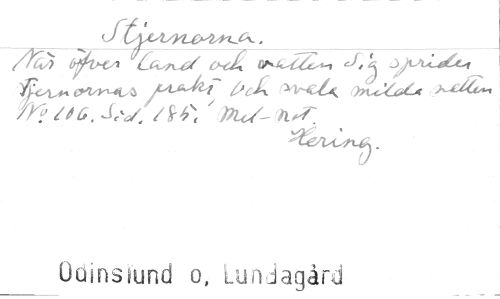 Stjernorna.
När öfver land och vatten Sig sprider
stjernornas prakt, Och svala milda natten
No 106. Sid. 185. Mel-not.
Hering.
Odinslund o, Lundagård